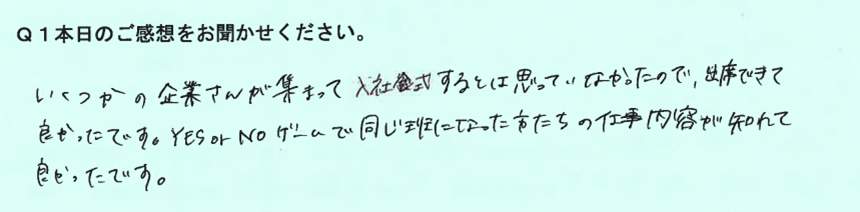 Q1本日のご感想をお聞かせください。
いくつかの企業さんが集まって入社式するとは思っていなかったので、出席できて
良かったです。YES or NOゲームで同じ班になった方たちの仕事内容が知れて
良かったです。